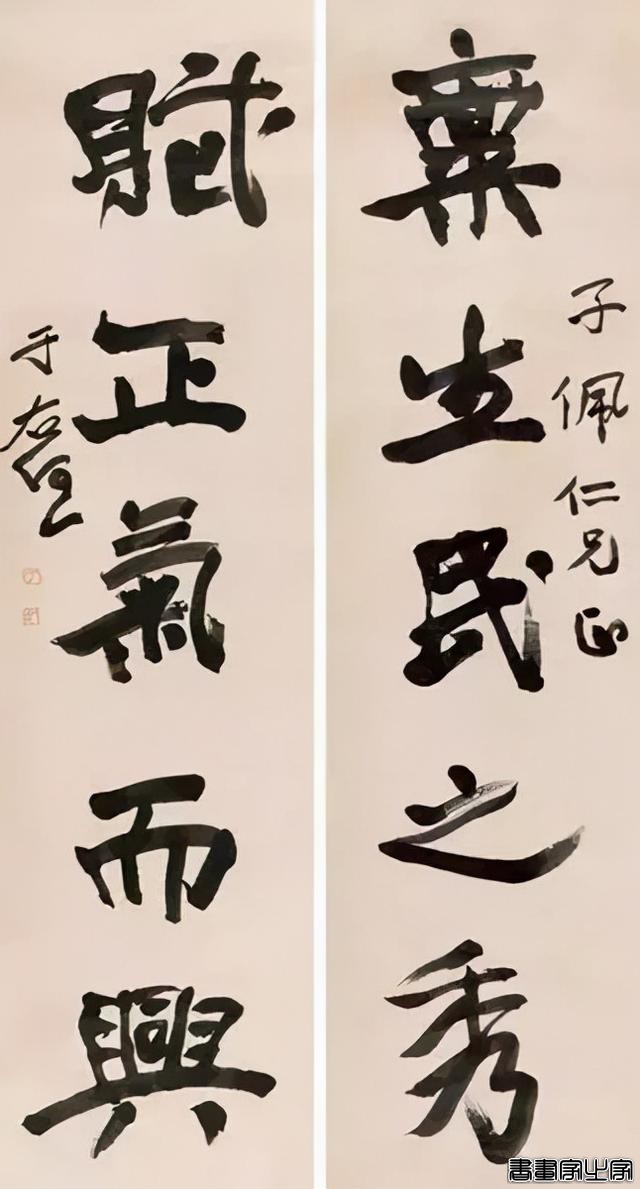 子佩仁兄正
稟生民之秀
賦正氣而興
于右任
書畫家之家